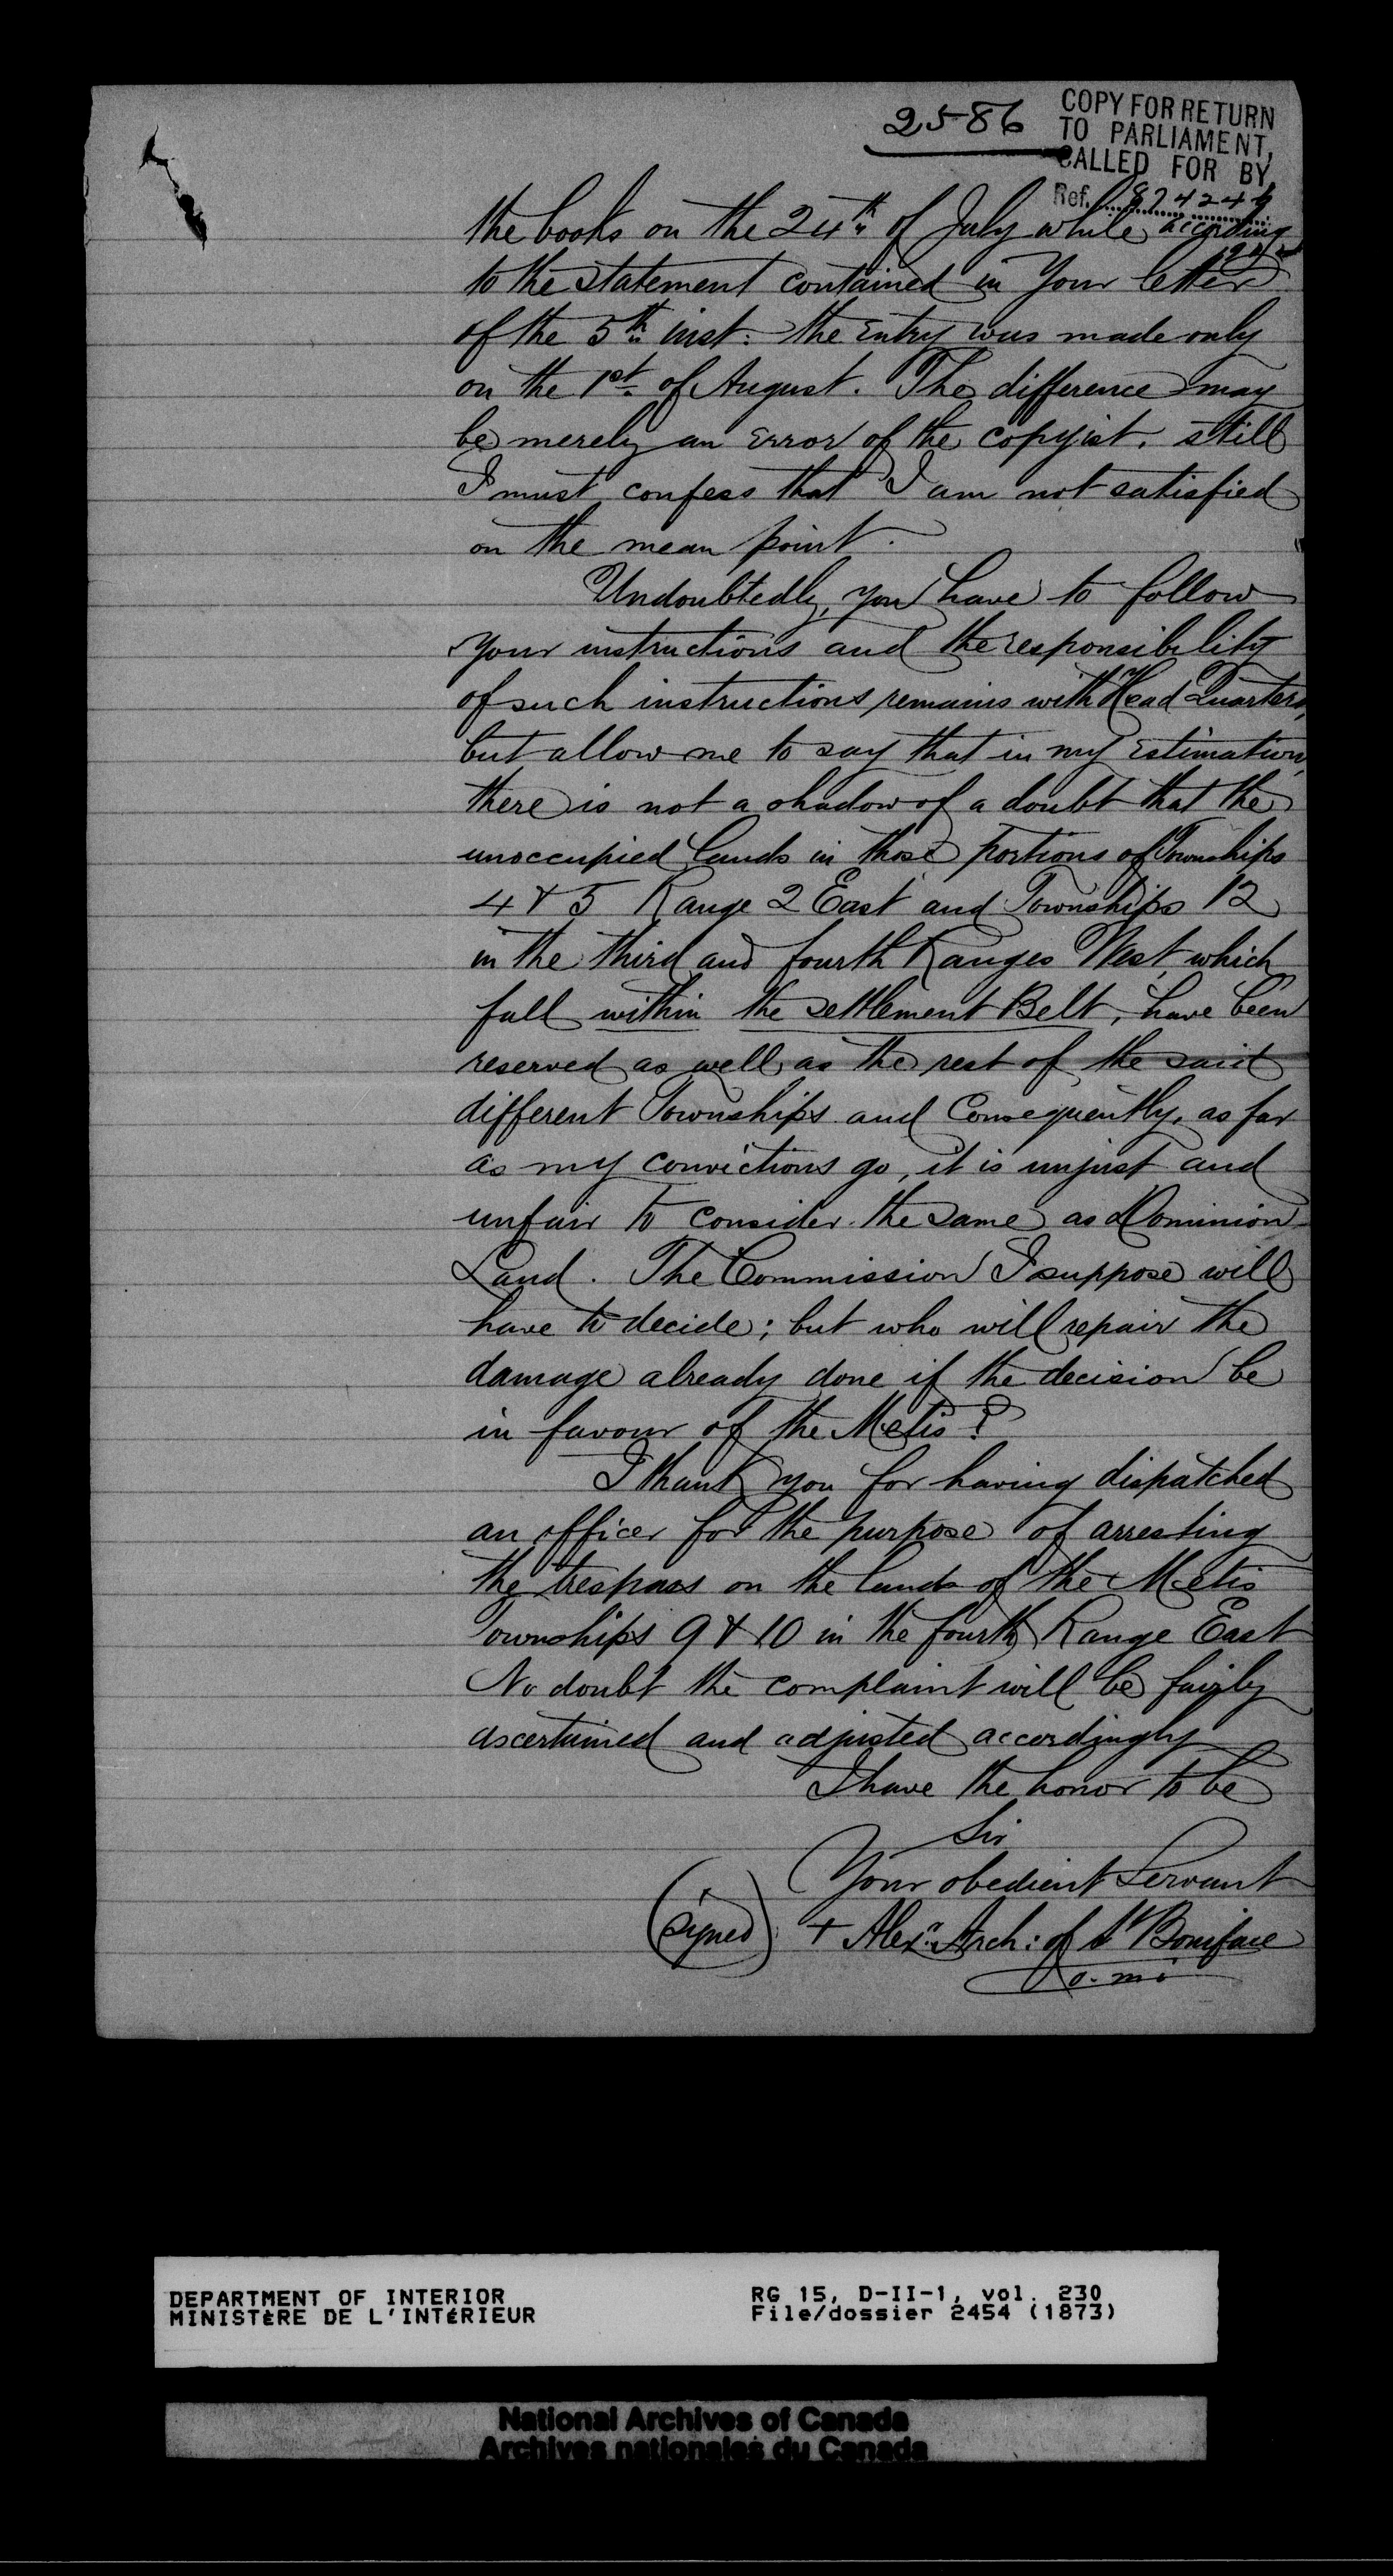 2586
COPY FOR RETURN
TO PARLIAMENT,
CALLED FOR BY,
Ref. 824244
the books on the 24th of July while according
to the statement contained in Your letter
of the 5th inst: the Entry was made only
on the 1st of August. The difference may
be merely an Error of the copyist. still
I must confess that I am not satisfied
on the mean point.
Undoubtedly, you have to follow
your instructions and the responsibility
of such instructions remains with Head Quarters,
but allow me to say that in my Estimation,
there is not a shadow of a doubt that the
unoccupied lands in those portions of Townships
4 & 5 Range 2 East and Townships 12
in the third and fourth Ranges West, which
fall within the settlement Belt, have been
reserved as well as the rest of the said
different Townships and Consequently, as far
as my convictions go, it is unjust and
unfair to consider the same as Dominion
Land. The Commission I suppose will
have to decide; but who will repair the
damage already done if the decision be
in favour of the Metis?
I thank you for having dispatched
an officer for the purpose of arresting
the trespass on the lands of the Metis
Townships 9 & 10 in the fourth Range East
No doubt the complaint will be fairly
ascertained and adjusted accordingly
I have the honor to be
Sir
Your obedient Servant
(signed) + Alexr. Arch: of St Boniface
o.m.i
DEPARTMENT OF INTERIOR
MINISTÈRE DE L'INTÉRIEUR
RG 15, D-II-1, vol. 230
File/dossier 2454 (1873)
National Archives of Canada
Archives nationales du Canada